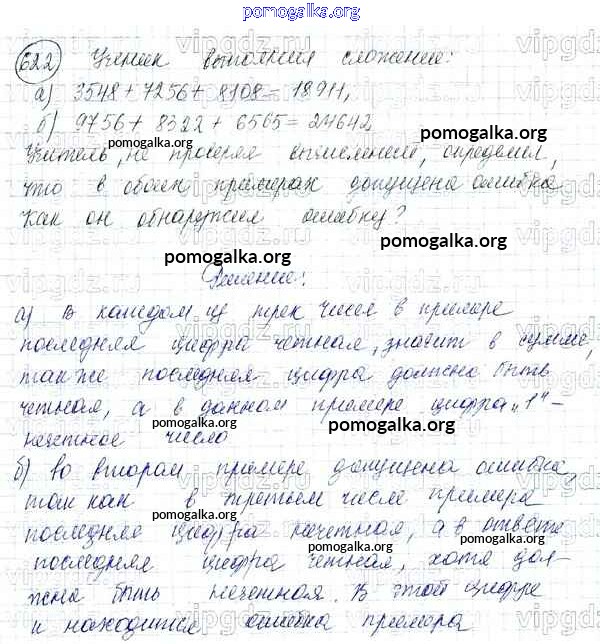 pomogalka.org
622 Ученик выполнил сложение:
а) 3548 + 7256 + 8108 = 18911,
б) 9756 + 8322 + 6565 = 24642
pomogalka.org
Учитель, не проверяя вычислений, определил,
что в обоих примерах допущена ошибка.
Как он обнаружил ошибку?
pomogalka.org
pomogalka.org
Решение:
а) В каждом из трех чисел в примере
pomogalka.org
последняя цифра четная, значит в сумме,
также последняя цифра должна быть
четная, а в данном примере цифра „1“ –
нечетное число
pomogalka.org
pomogalka.org
б) во втором примере допущена ошибка,
так как в третьем числе примера
pomogalka.org
последняя цифра нечетная, а в ответе
pomogalka.org
последняя цифра четная, хотя дол-
жна быть нечетная. В этой цифре
pomogalka.org
и находится ошибка примера
pomogalka.org
vipgdz.ru